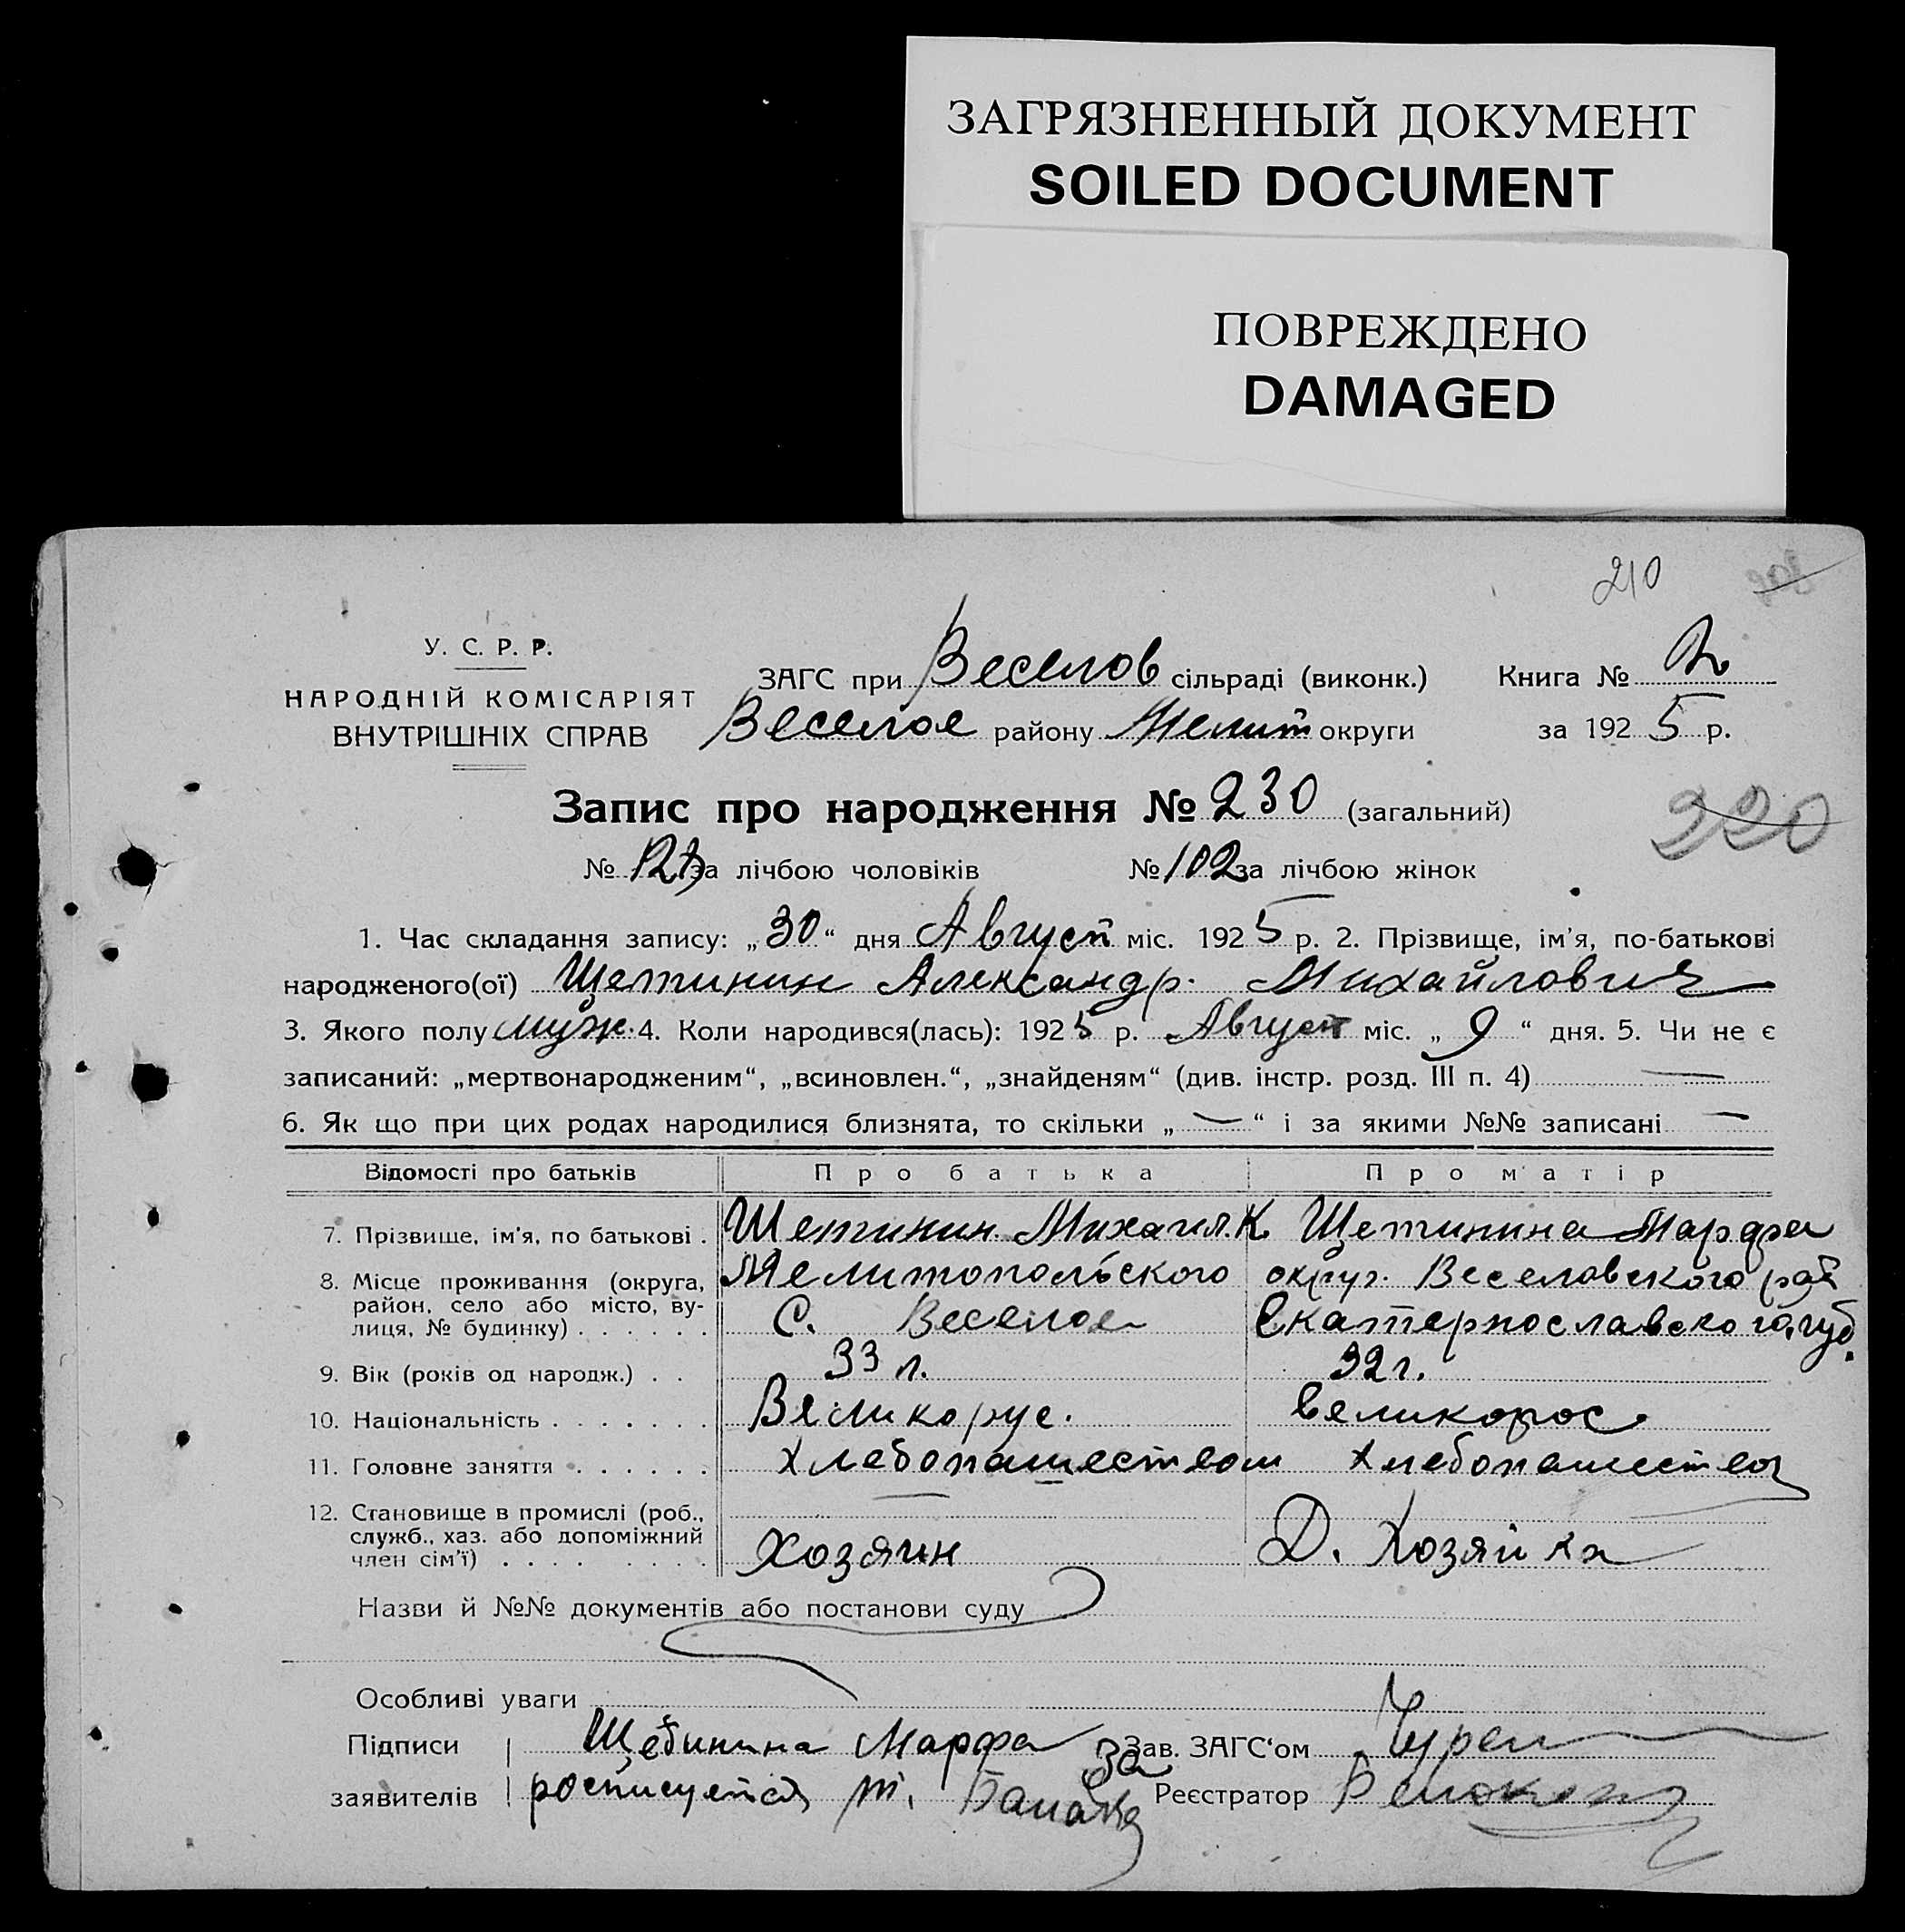 ЗАГРЯЗНЕННЫЙ ДОКУМЕНТ
SOILED DOCUMENT
ПОВРЕЖДЕНО
DAMAGED
210
У. С. Р. Р.
НАРОДНІЙ КОМІСАРІЯТ
ВНУТРІШНІХ СПРАВ
ЗАГС при Веселов сільраді (виконк.)
Веселое району Мелит округи
Книга № 2
за 1925 р.
Запис про народження № 230 (загальний)
220
№ за лічбою чоловіків № 102 за лічбою жінок
1. Час складання запису: „30“ дня Август міс. 1925 р. 2. Прізвище, ім’я, по-батькові
народженого(ої) Щетинин Александр. Михайлович
3. Якого полу муж. 4. Коли народився(лась): 1925 р. Август міс. „9“ дня. 5. Чи не є
записаний: „мертвонародженим“, „всиновлен.“, „знайденям“ (див. інстр. розд. III п. 4) —
6. Як що при цих родах народилися близнята, то скільки „—“ і за якими №№ записані —
Відомості про батьків Про батька Про матір
7. Прізвище, ім’я, по батькові . Щетинин Михаил. К Щетинина Марфа
8. Місце проживання (округа, Мелитопольского округ. Веселовского рай
район, село або місто, ву-
лиця, № будинку) . . . . . . С. Веселое Екатернославского губ.
9. Вік (років од народж.) . . 33 л. 32 г.
10. Національність . . . . . . . Великорус. великорос.
11. Головне заняття . . . . . . Хлебопашеством Хлебопашество
12. Становище в промислі (роб.,
служб., хаз. або допоміжний
член сім’ї) . . . . . . . . Хозяин Д. Хозяйка
Назви й №№ документів або постанови суду
Особливі уваги
Підписи Щетинина Марфа За Зав. ЗАГС‘ом
заявителів росписуется Реєстратор